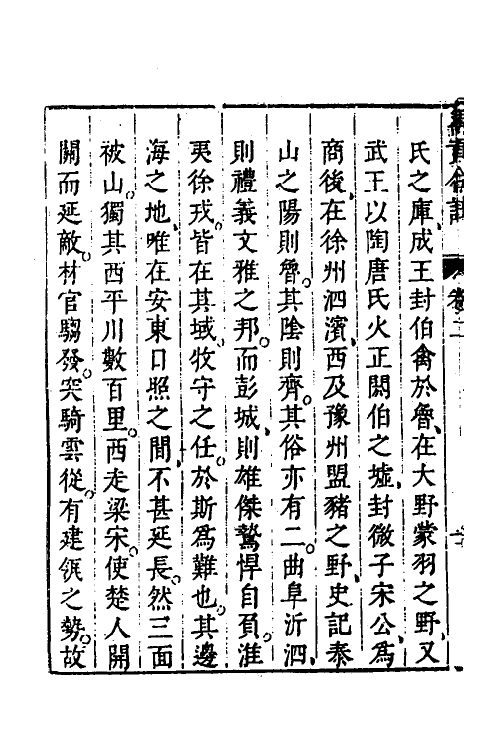 禹貢合註 卷二
氏之庫、成王封伯禽於魯、在大野蒙羽之野、又
武王以陶唐氏火正閼伯之墟、封微子宋公、爲
商後、在徐州泗濱、西及豫州盟豬之野、史記泰
山之陽則魯。其陰則齊。其俗亦有二。曲阜沂泗、
則禮義文雅之邦。而彭城、則雄傑鷙悍自負。淮
夷徐戎。皆在其域、牧守之任。於斯爲難也。其邊
海之地、唯在安東日照之間、不甚延長。然三面
被山。獨其西平川數百里。西走梁宋。使楚人開
關而延敵。材官騶發。突騎雲從。有建瓴之勢。故